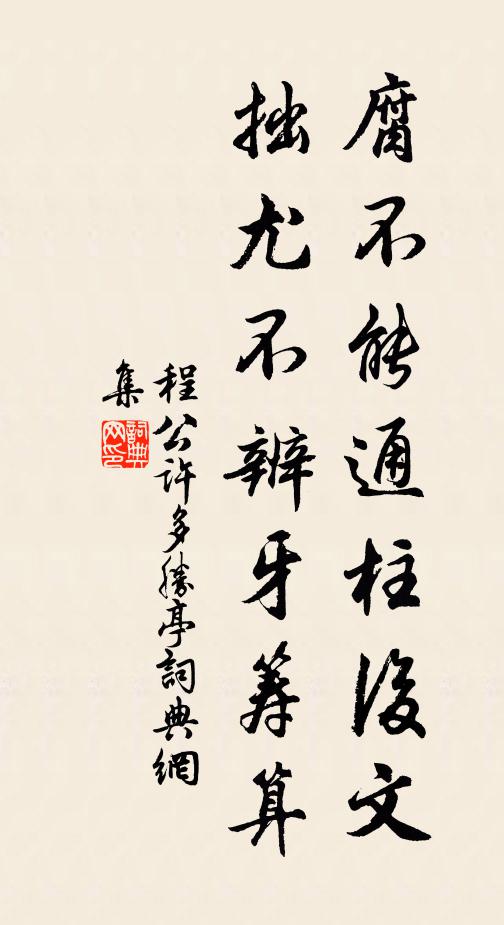 腐不能通柱後文
拙尤不辨牙筭算
程公許多勝亭詞典網
集
詞典
网印